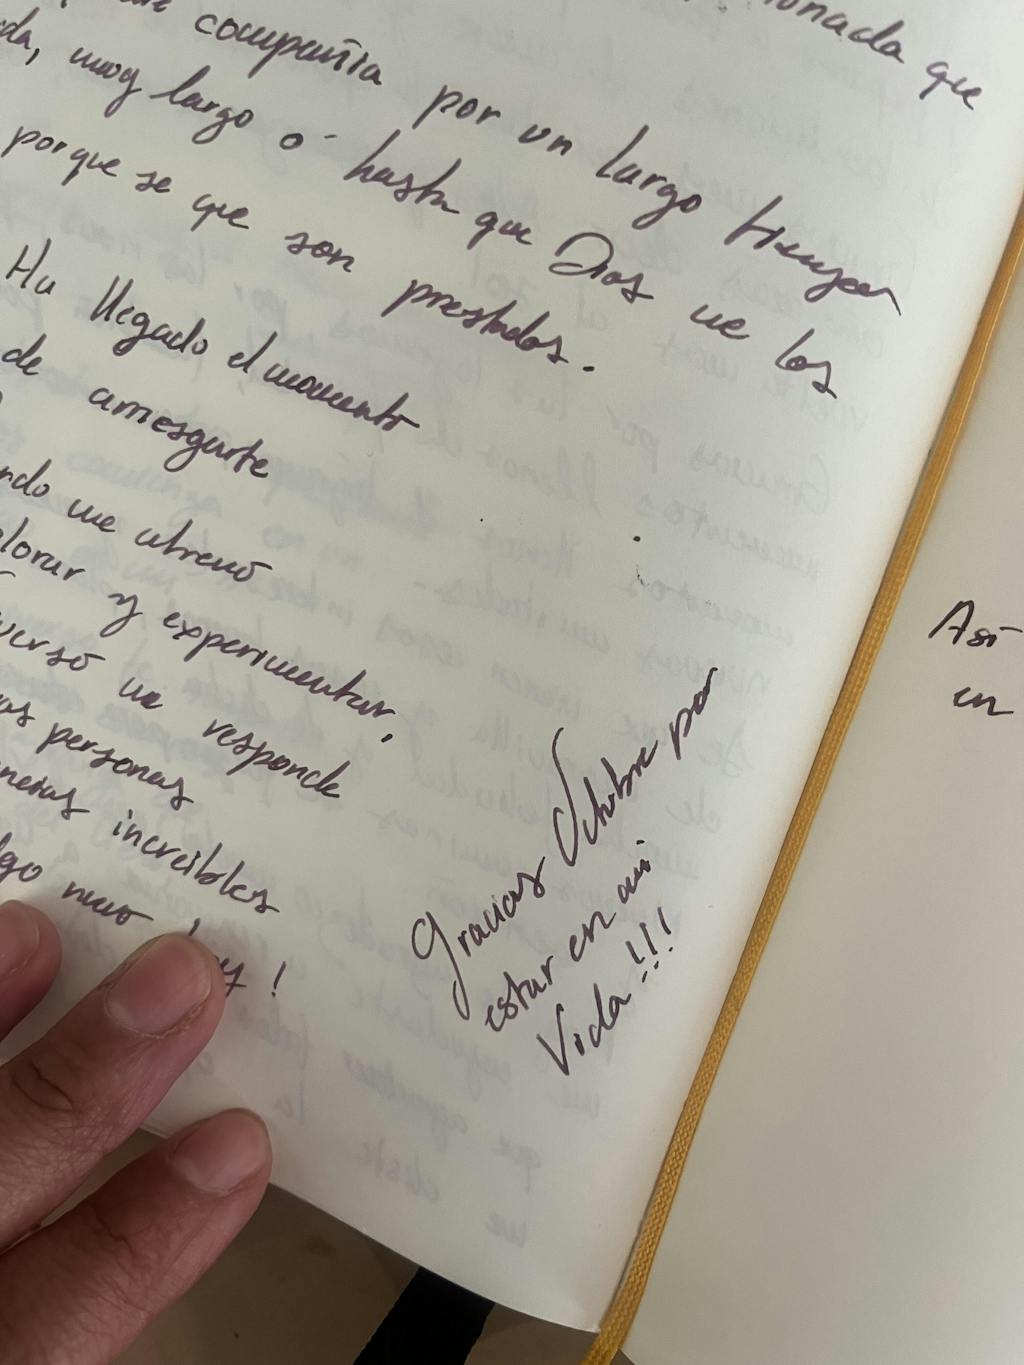 onada que
compañia por un largo tiempo
da, muy largo o hasta que Dios me los
porque se que son prestados.
Ha llegado el momento
de arriesgarte
ndo me atrevo
lorar y experimentar,
verso me responde
as personas
neras increibles
lgo nuevo
y!
Gracias Octubre por
estar en mi
Vida!!!
Así
en